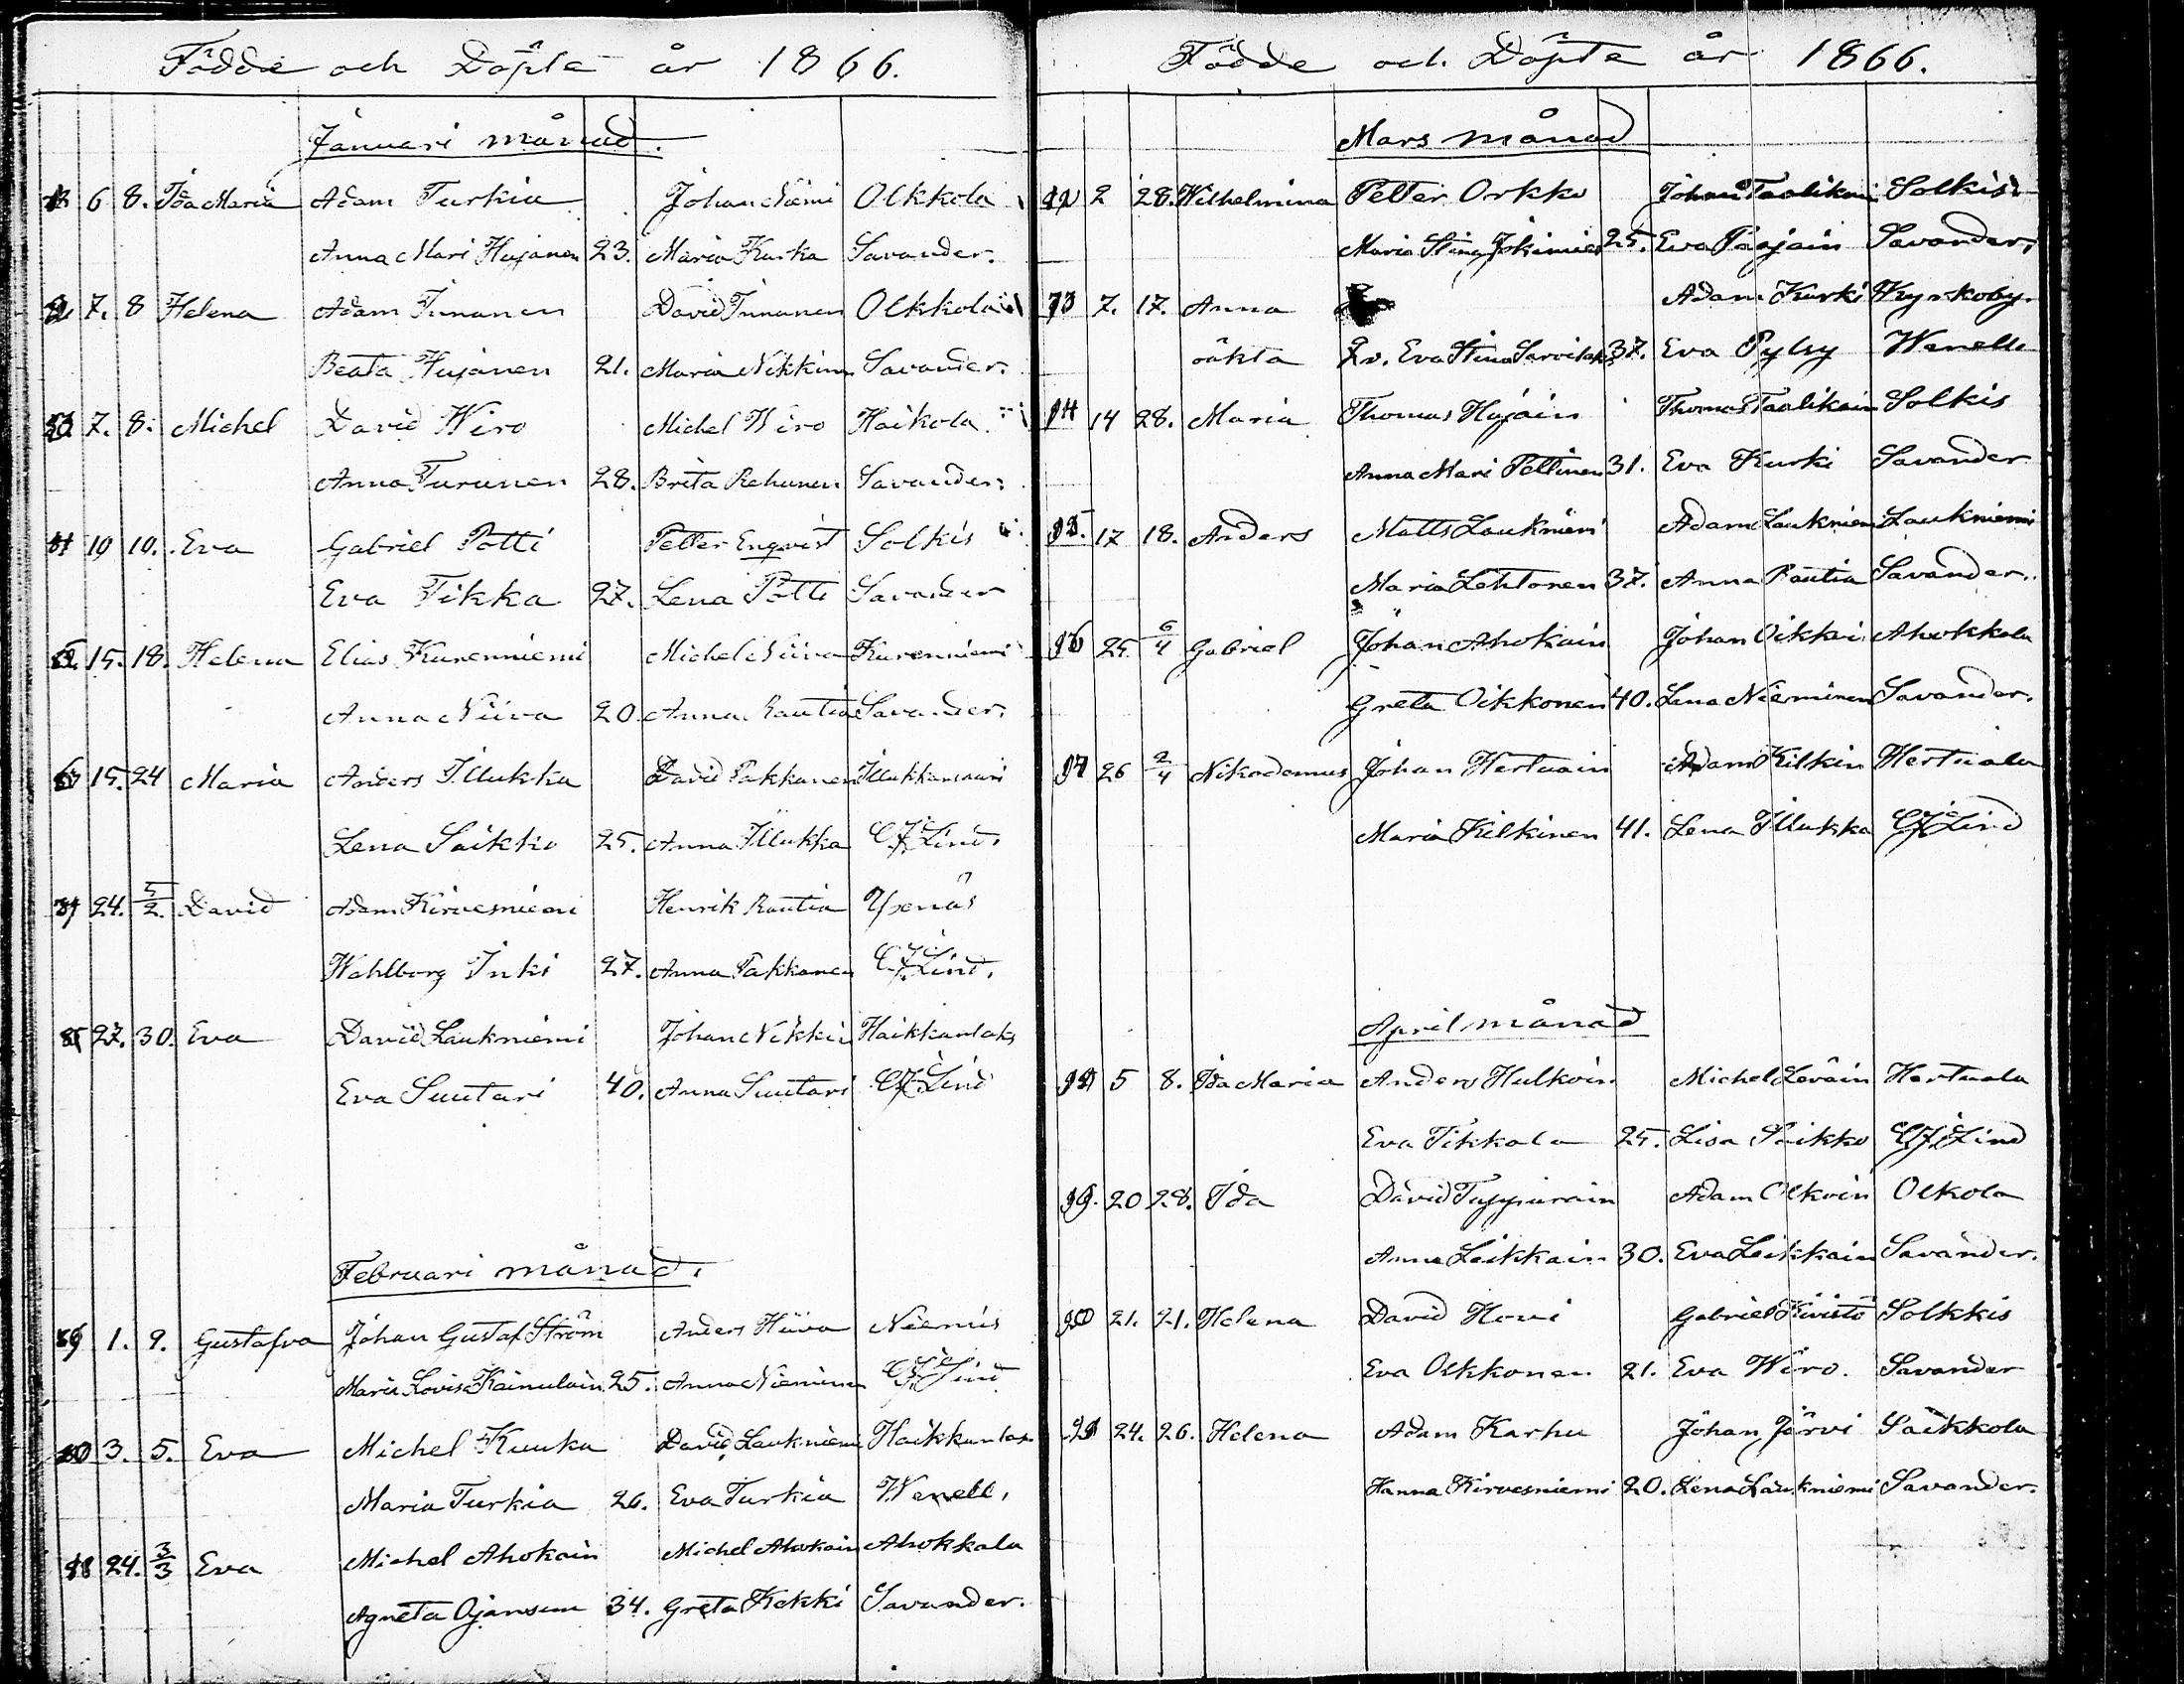 Födde och Döpte år 1866.
Januari månad.
6 8. Ida Maria Adam Turkia Johan Niemi Olkkola
Anna Mari Hujanen 23. Maria Kurka Savander.
7. 8 Helena Adam Innanen David Innanen Olkkola
Beata Hujanen 21. Maria Nikkinen Savander.
7. 8. Michel David Wiro Michel Wiro Haikola
Anna Turunen 28. Brita Rehunen Savander.
10 10. Eva Gabriel Potti Petter Enqvist Solkis
Eva Tikka 27. Lena Potti Savander
15. 18. Helena Elias Kurenniemi Michel Niiva Kurenniemi
Anna Niiva 20 Anna Rautia Savander.
15. 24 Maria Anders Illukka David Pakkanen Illukkansaari
Lena Saikko 25. Anna Illukka CJLind.
24. 5/2. David Adam Kirvesniemi Henrik Rautia
Wahlborg Inki 27. Anna Pakkanen CJLind.
27. 30. Eva David Laukniemi Johan Nikki Haikkanlaks
Eva Suutari 40. Anna Suutari CJLind
Februari månad.
1. 9. Gustafva Johan Gustaf Ström Anders Niemis
Maria Lovisa Kainulain 25. Anna Nieminen CJLind
3. 5. Eva Michel Kuuka David Laukniemi Haikkanlax
Maria Turkia 26. Eva Turkia Wenell.
24. 3/3 Eva Michel Ahokain Michel Ahokain Ahokkala
Agneta Ojansuu 34. Greta Kekki Savander.
Födde och Döpte år 1866.
Mars månad
2 28. Wilhelmina Petter Orkko Johan Taalikain Solkis
Maria Stina Jokimies 25. Eva Paajain Savander.
13 7. 17. Anna Adam Kurki Kyrkoby.
oäkta Qv. Eva Stina 37. Eva Pylsy Wenell
14 14 28. Maria Thomas Hujain Thomas Taalikain Solkis
Anna Mari Peltinen 31. Eva Kurki Savander
15. 17 18. Anders Matts Laukniemi Adam Laukniemi Laukniemi
Maria Lehtonen 37. Anna Rautia Savander.
16 25 6/4 Gabriel Johan Ahokain Johan Oikkoi Ahokkala
Greta Oikkonen 40. Lena Nieminen Savander.
17 26 2/4 Nikodemus Johan Hertuain Adam Kilkin Hertuala
Maria Kilkinen 41. Lena Illukka CJLind
April månad
5 8. Ida Maria Anders Hulkoin Michel Leväin Hertuala
Eva Tikkala 25. Lisa Saikko CJLind
19. 20 28. Ida David Tuppurain Adam Olkoin Olkola
Anna Leikkain 30. Eva Leikkain Savander.
21. 21. Helena David Hovi Gabriel Kivistö Solkkis
Eva Olkkonen 21. Eva Wiro. Savander
24. 26. Helena Adam Karhu Johan Järvi Saikkola
Hanna Kirvesniemi 20. Lena Laukniemi Savander.